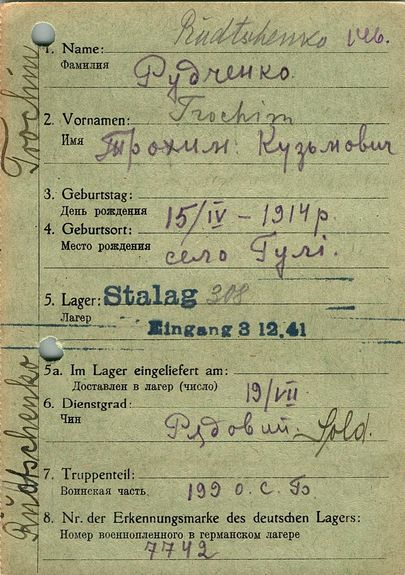 Trochim
Rüdtschenko
Rüdtschenko
1. Name:
Фамилия
Рудченко
2. Vornamen: Trochim
Имя
Трохим Кузьмович
3. Geburtstag:
День рождения
15/IV – 1914 р.
4. Geburtsort:
Место рождения
село Гулі.
5. Lager: Stalag 308
Лагер
Eingang 3 12.41
5a. Im Lager eingeliefert am:
Доставлен в лагер (число)
19/VII
6. Dienstgrad:
Чин
Рядовий. Sold.
7. Truppenteil:
Воинская часть.
199 О. С. Б
8. Nr. der Erkennungsmarke des deutschen Lagers:
Номер военнопленного в германском лагере
7742